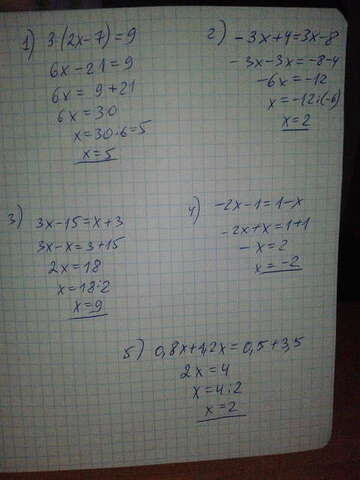 1) 3·(2x-7)=9
6x-21=9
6x=9+21
6x=30
x=30:6=5
x=5
2) -3x+4=3x-8
-3x-3x=-8-4
-6x=-12
x=-12:(-6)
x=2
3) 3x-15=x+3
3x-x=3+15
2x=18
x=18:2
x=9
4) -2x-1=1-x
-2x+x=1+1
-x=2
x=-2
5) 0,8x+1,2x=0,5+3,5
2x=4
x=4:2
x=2